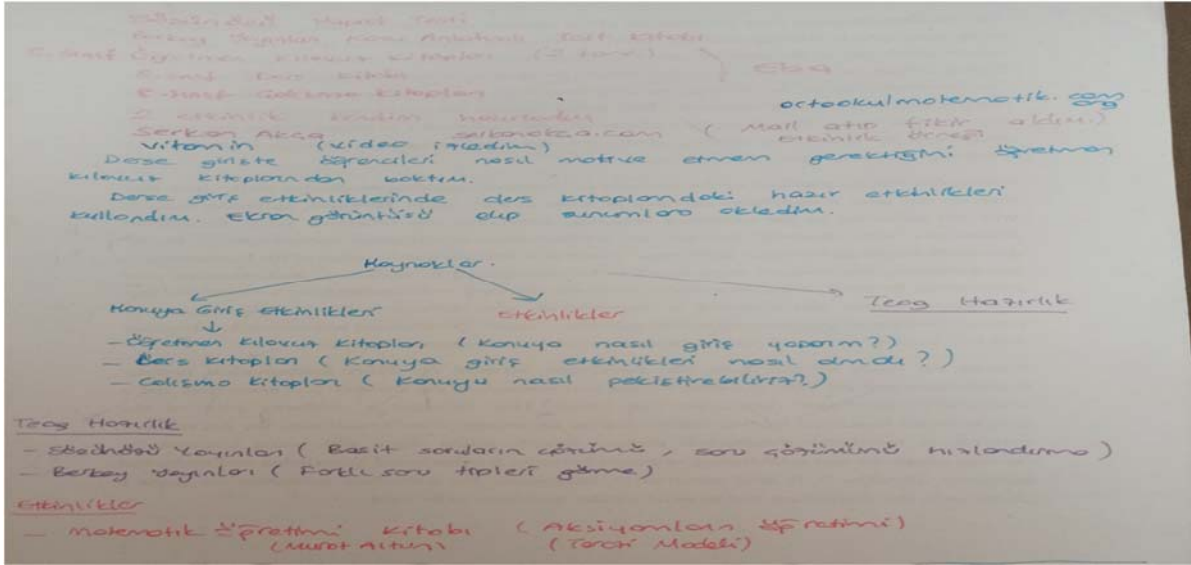 Sözünözü Yaprak Testi
Berkay Yayınları Konu Anlatımlı Test Kitabı
8. sınıf Öğretmen Kılavuz Kitapları (2 tane)
8. sınıf Ders Kitabı Eba
8. sınıf Çalışma Kitapları
ortaokulmatematik.com
org
2 etkinlik kendim hazırladım
Serkan Akça serkanakca.com (Mail atıp fikir aldım.)
etkinlik örneği
Vitamin (video izledim)
Derse girişte öğrencileri nasıl motive etmem gerektiğini öğretmen
kılavuz kitaplarından baktım.
Derse giriş etkinliklerinde ders kitaplarındaki hazır etkinlikleri
kullandım. Ekran görüntüsü alıp sunumlara ekledim.
Kaynaklar.
Konuya Giriş Etkinlikleri Etkinlikler Teog Hazırlık
- Öğretmen Kılavuz Kitapları (Konuya nasıl giriş yaparım?)
- Ders Kitapları (Konuya giriş etkinlikleri nasıl olmalı?)
- Çalışma Kitapları (Konuyu nasıl pekiştirebiliriz?)
Teog Hazırlık
- Yayınları (Basit soruların çözümü, soru çözümünü hızlandırma)
- Berkay Yayınları (Farklı soru tipleri görme)
Etkinlikler
- Matematik Öğretimi Kitabı (Aksiyomların öğretimi)
(Murat Altun) (Terazi Modeli)